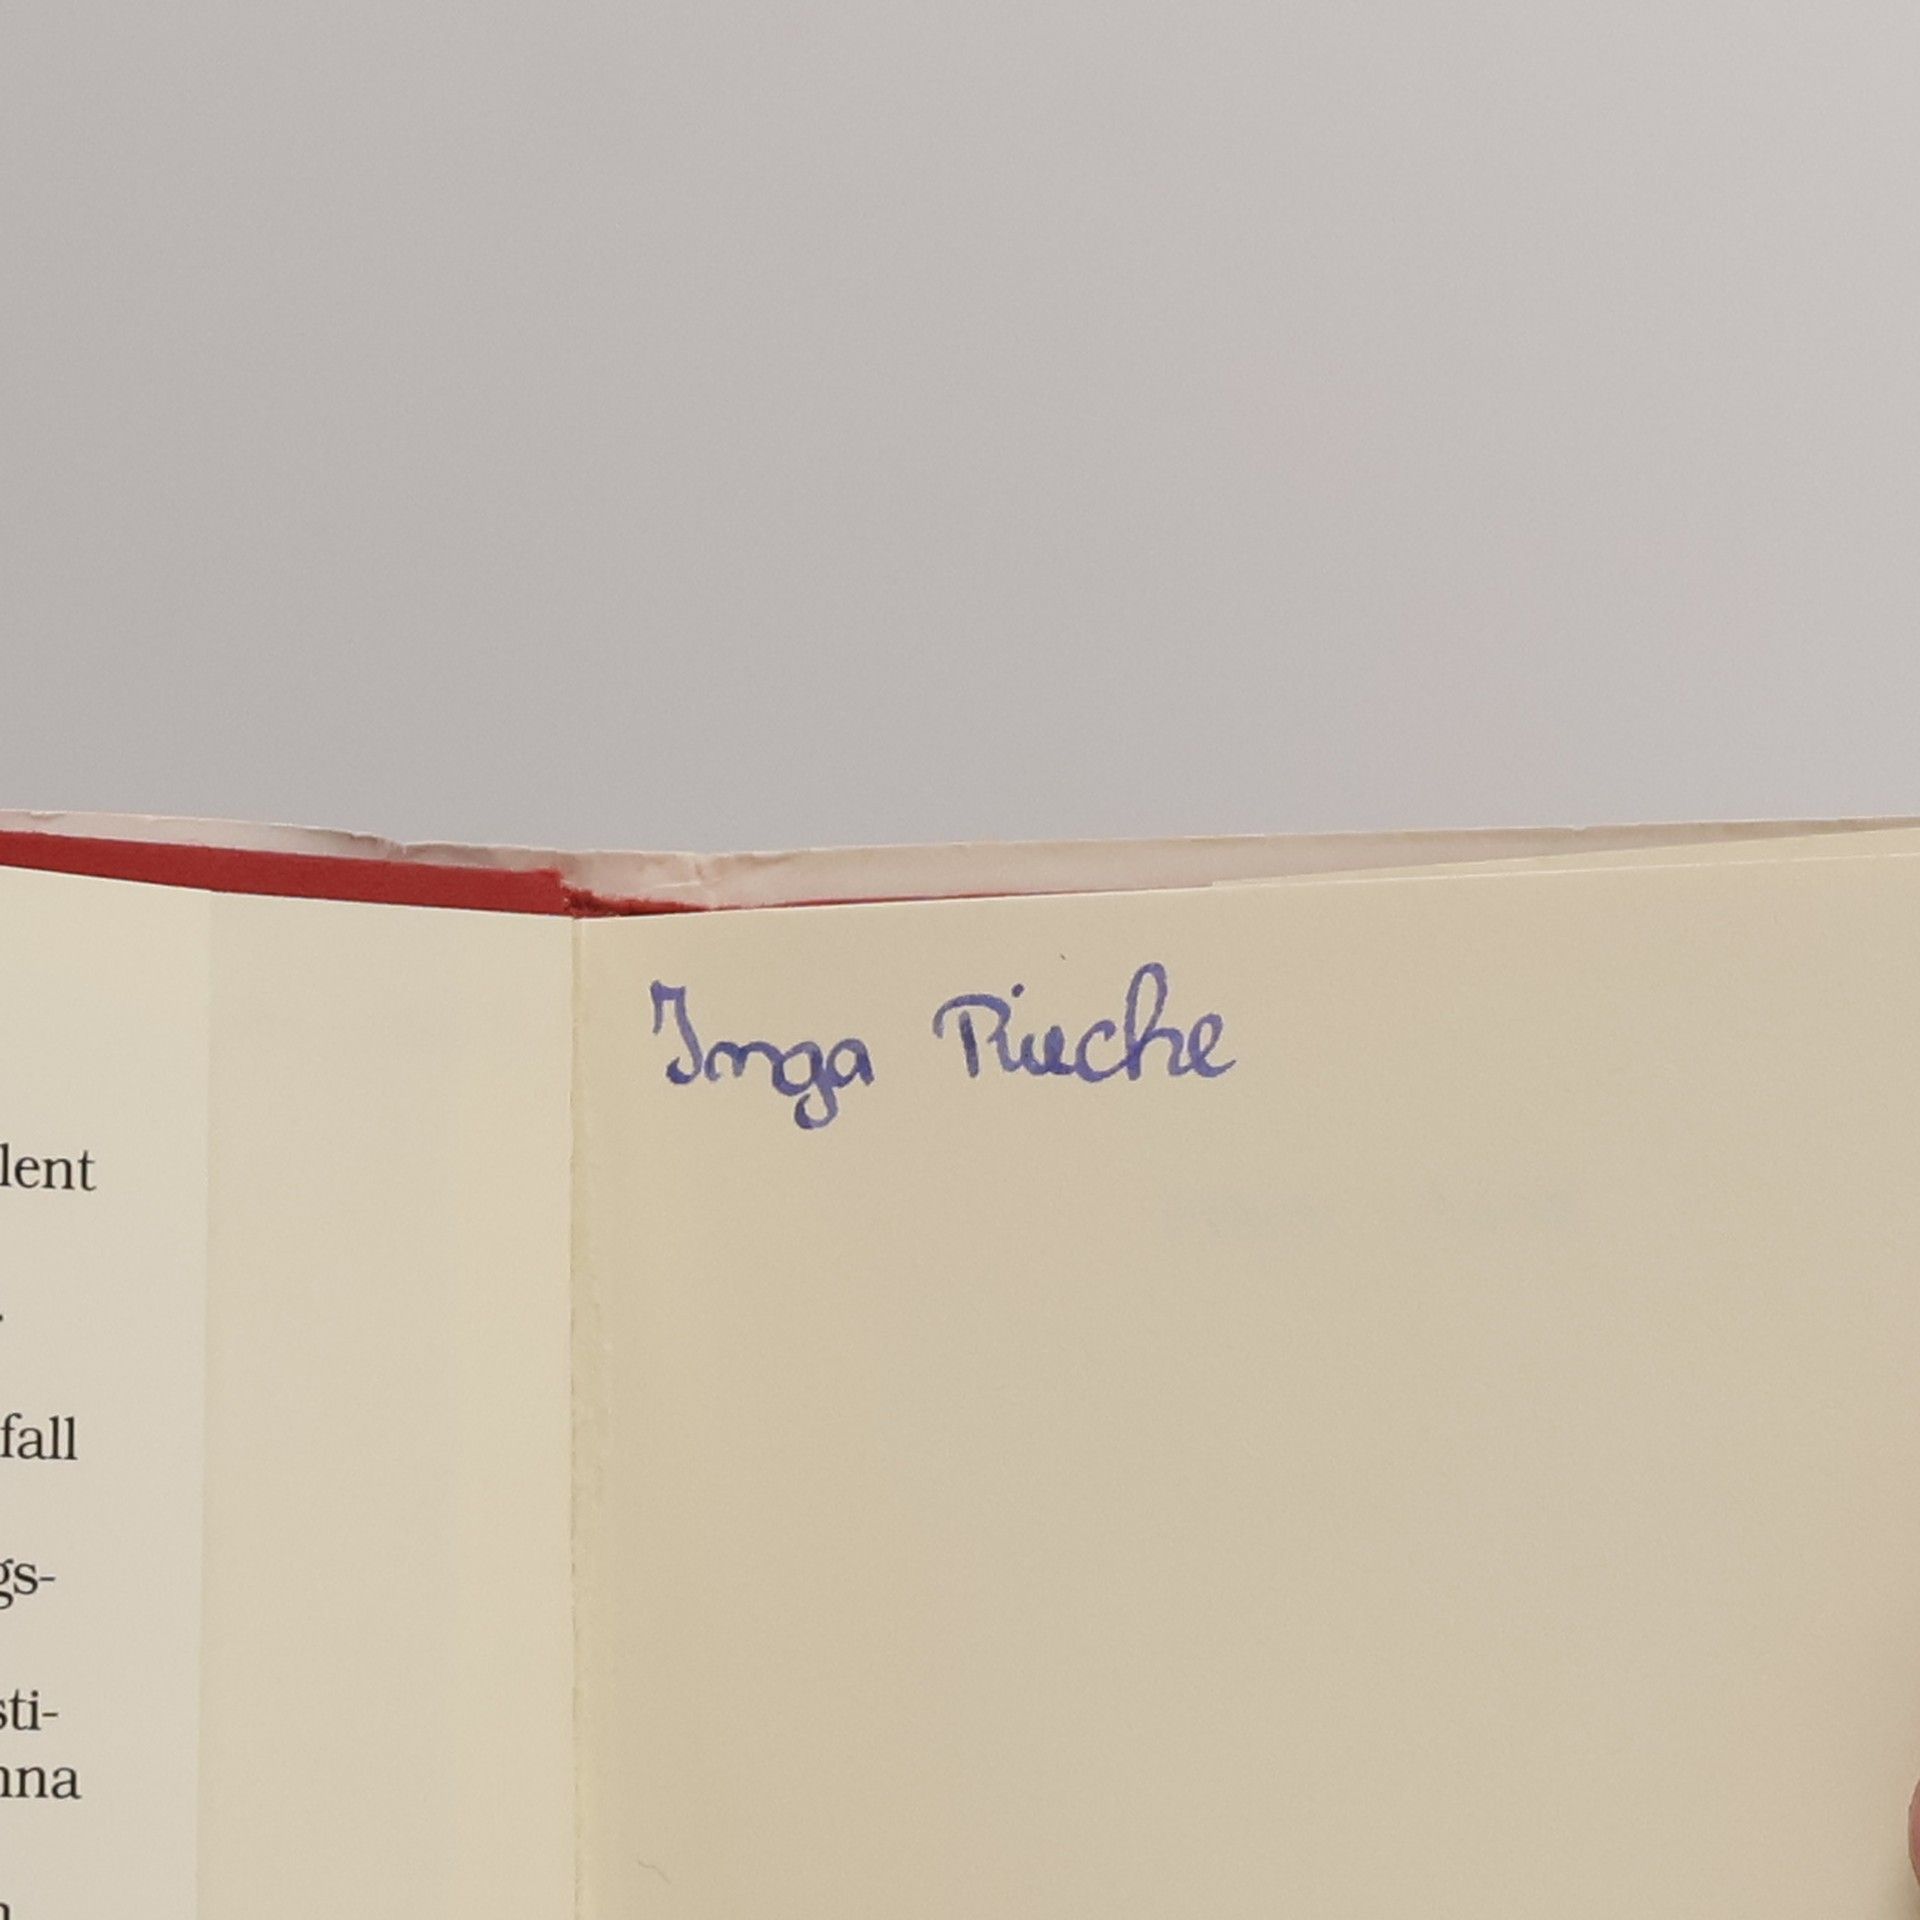 Inga
lent
.
fall
gs-
sti-
nna